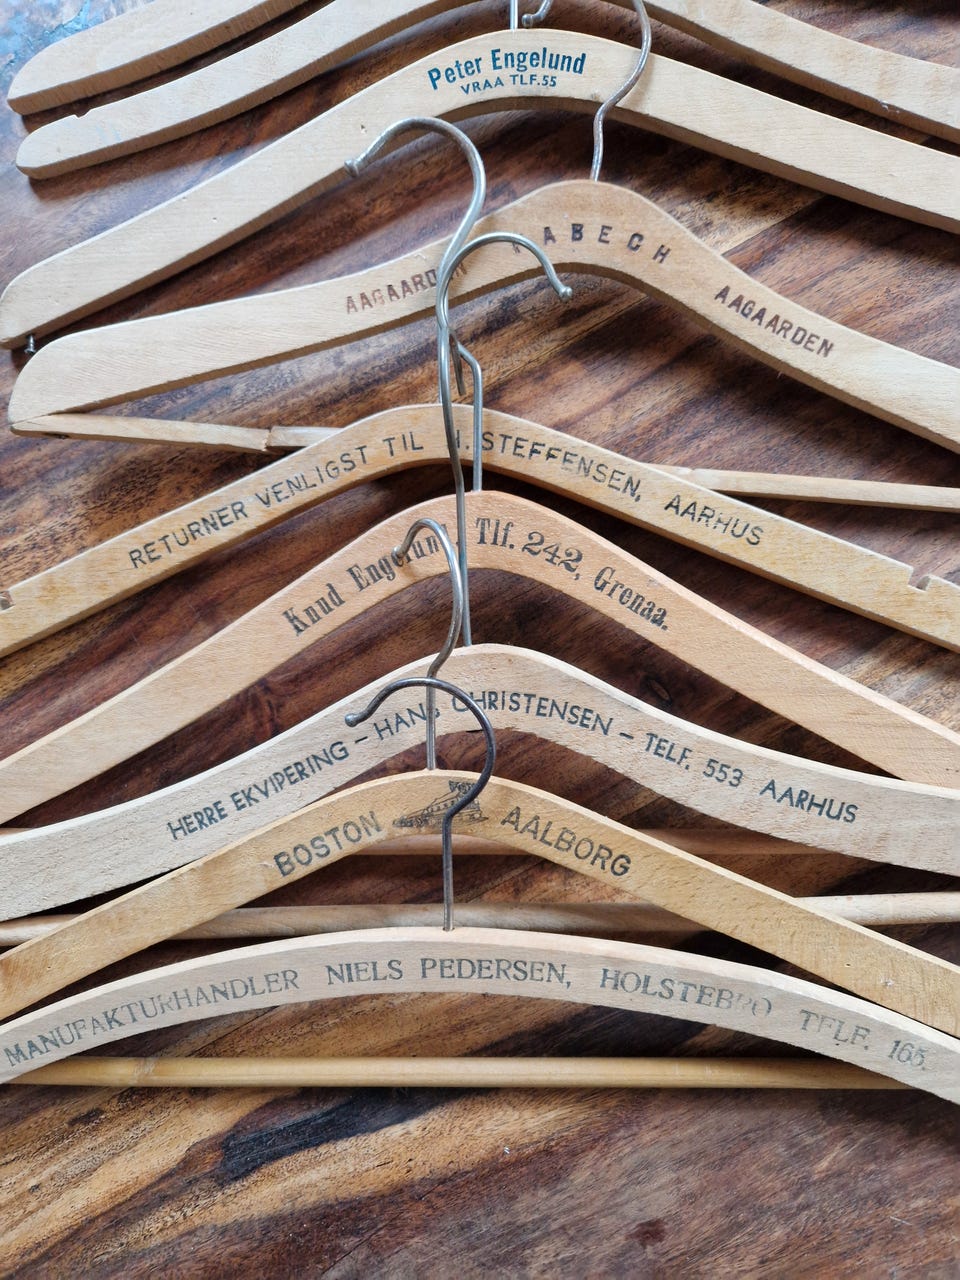 Peter Engelund
VRAA TLF.55
AAGAARDEN AAGAARDEN
RETURNER VENLIGST TIL H. STEFFENSEN, AARHUS
Knud Engelund, Tlf. 242, Grenaa.
HERRE EKVIPERING – HANS CHRISTENSEN – TELF. 553 AARHUS
BOSTON AALBORG
MANUFAKTURHANDLER NIELS PEDERSEN, HOLSTEBRO TELF. 165.